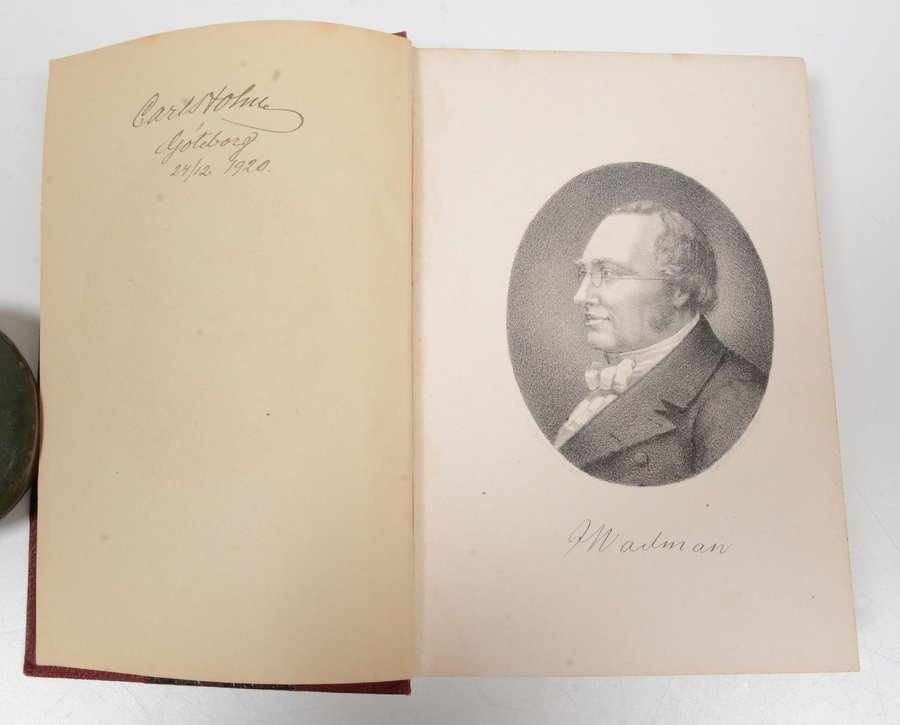 Carl Holme
Göteborg
24/12 1920.
J Wadman